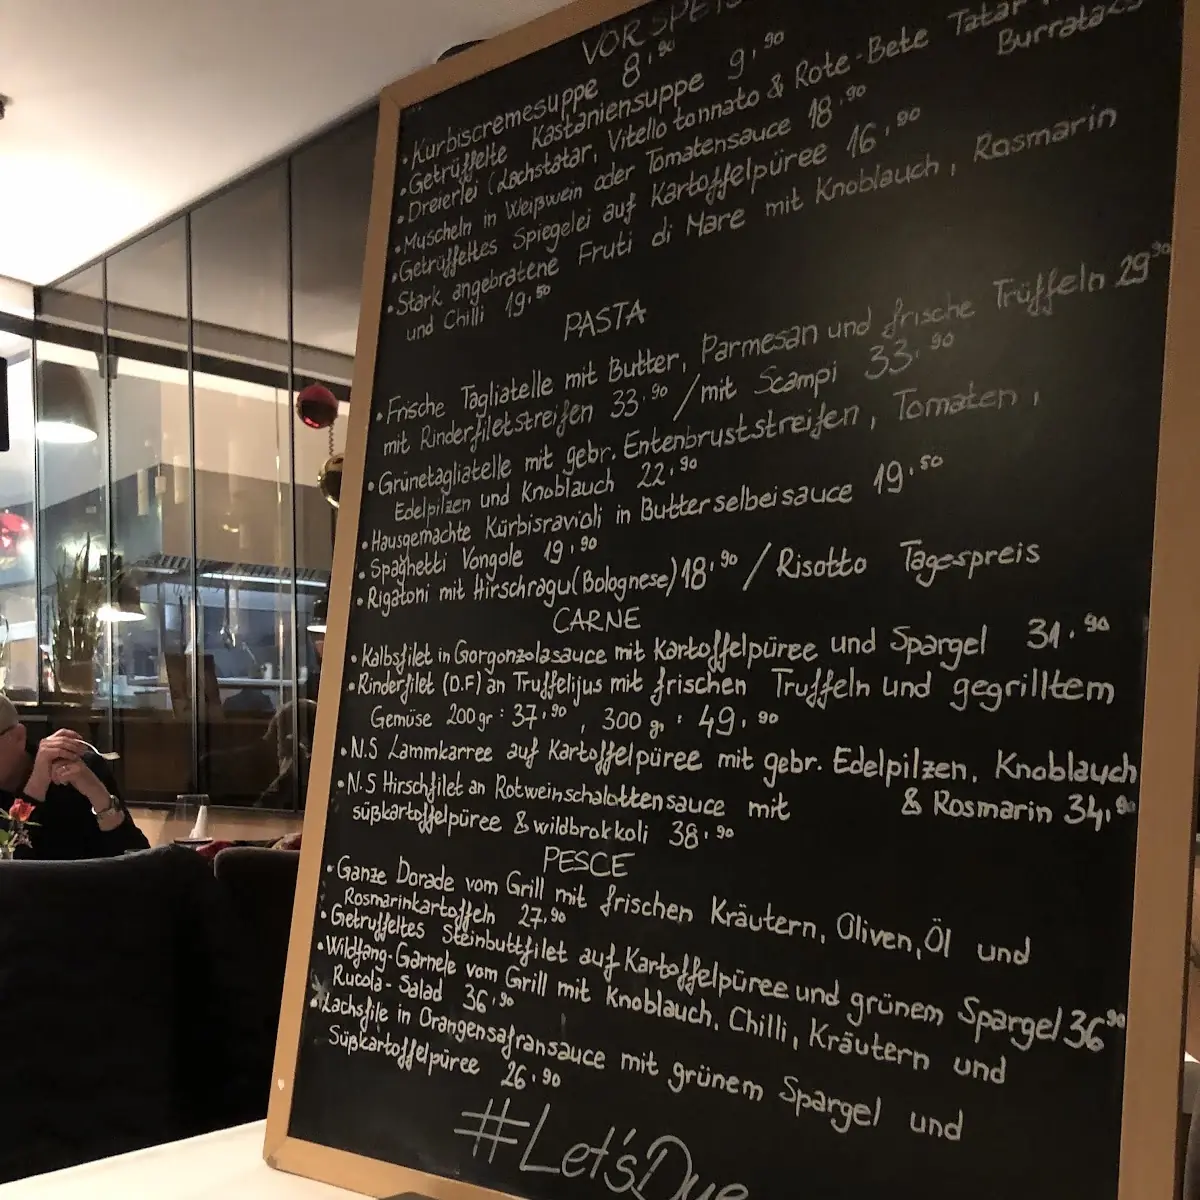 VORSPEI
• Kürbiscremesuppe 8,90
• Getrüffelte Kastaniensuppe 9,90
• Dreierlei (Lachstatar, Vitello tonnato & Rote-Bete Tatar
Burrata
• Muscheln in Weißwein oder Tomatensauce 18,90
• Getrüffeltes Spiegelei auf Kartoffelpüree 16,90
• Stark angebratene Fruti di Mare mit Knoblauch, Rosmarin
und Chilli 19,50
PASTA
• Frische Tagliatelle mit Butter, Parmesan und frische Trüffeln 29,90
mit Rinderfiletstreifen 33,90 / mit Scampi 33,90
• Grünetagliatelle mit gebr. Entenbruststreifen, Tomaten,
Edelpilzen und Knoblauch 22,90
• Hausgemachte Kürbisravioli in Butterselbeisauce 19,50
• Spaghetti Vongole 19,90
• Rigatoni mit Hirschragu (Bolognese) 18,90 / Risotto Tagespreis
CARNE
• Kalbsfilet in Gorgonzolasauce mit Kartoffelpüree und Spargel 31,90
• Rinderfilet (D.F) an Truffelijus mit frischen Truffeln und gegrilltem
Gemüse 200gr: 37,90, 300gr: 49,90
• N.S Lammkarree auf Kartoffelpüree mit gebr. Edelpilzen, Knoblauch
& Rosmarin 34,90
• N.S Hirschfilet an Rotweinschalottensauce mit
süßkartoffelpüree & wildbrokkoli 38,90
PESCE
• Ganze Dorade vom Grill mit frischen Kräutern, Oliven, Öl und
Rosmarinkartoffeln 27,90
• Getruffeltes Steinbuttfilet auf Kartoffelpüree und grünem Spargel 36,90
• Wildfang-Garnele vom Grill mit Knoblauch, Chilli, Kräutern und
Rucola-Salad 36,90
• Lachsfile in Orangensafransauce mit grünem Spargel und
Süßkartoffelpüree 26,90
#Let'sDue